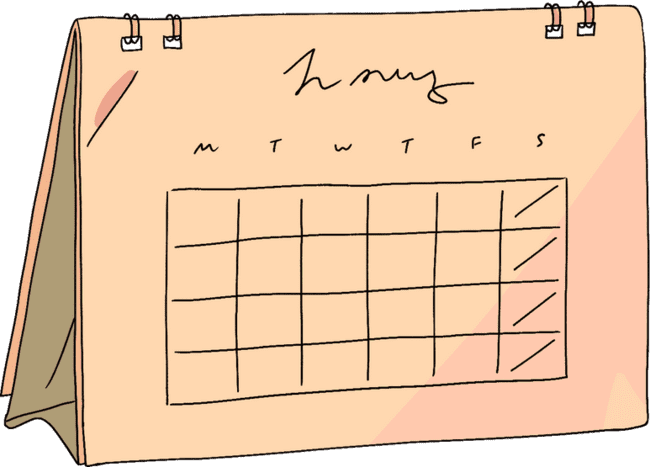 M T W T F S